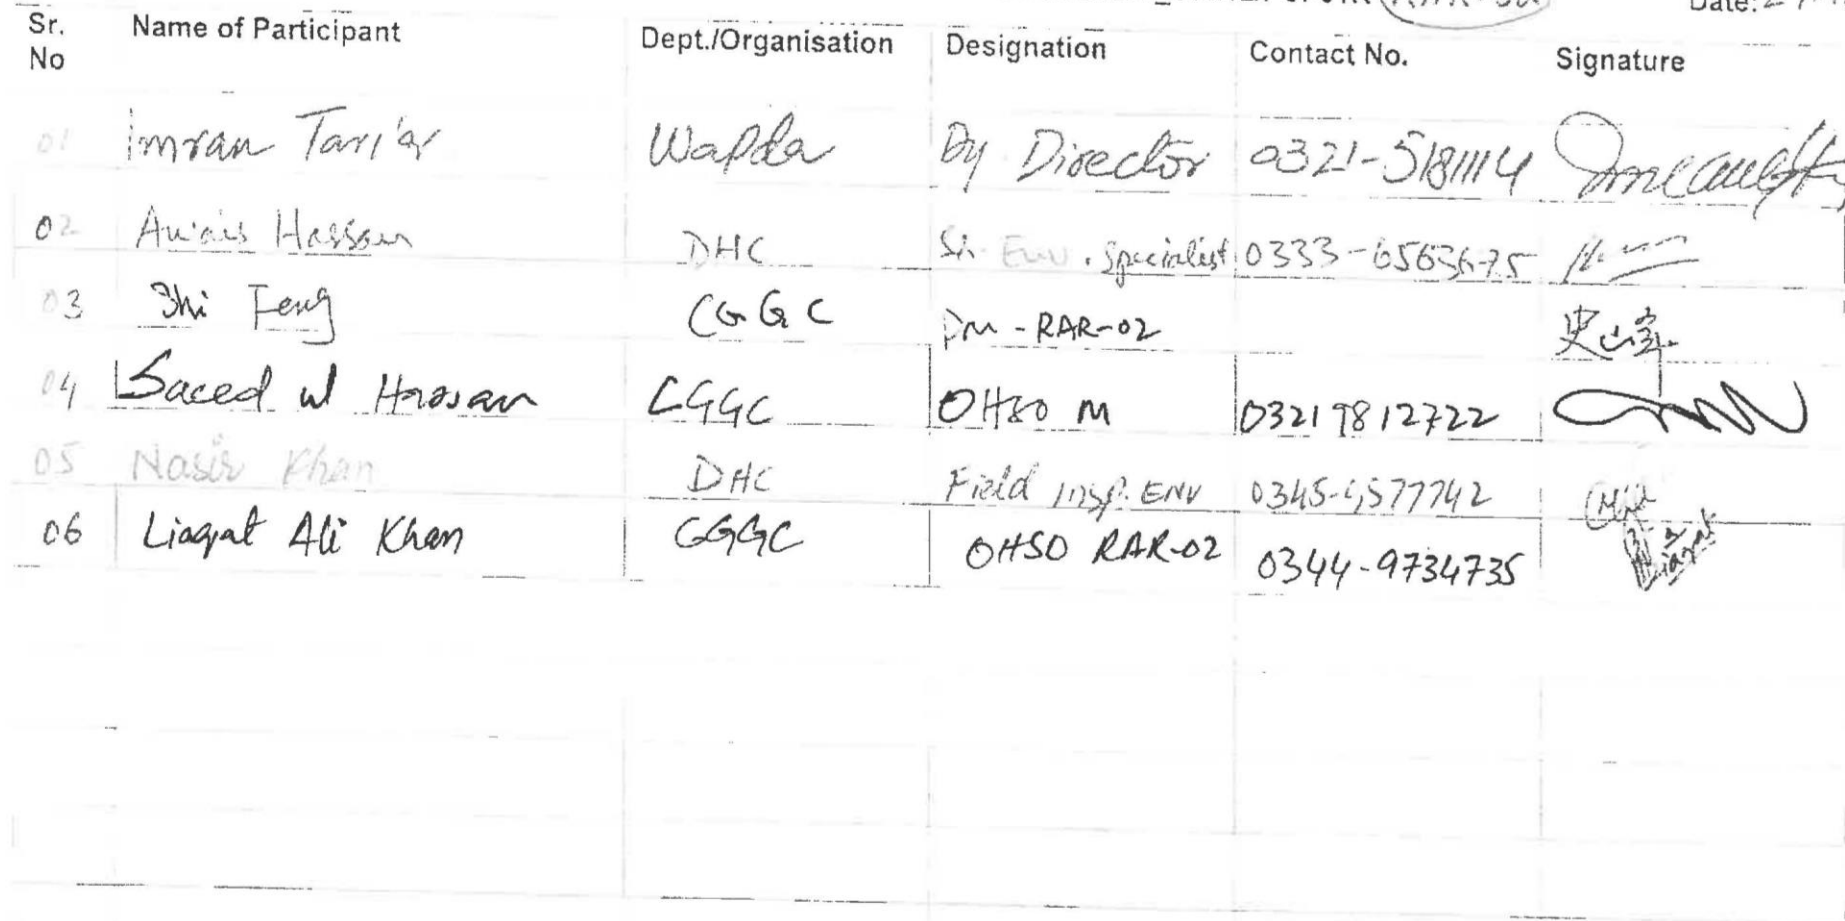 RAR-02 Date: 2
Sr. No Name of Participant Dept./Organisation Designation Contact No. Signature
01 Imran Tariq Wapda Dy Director 0321-5181114
02 Awais Hassan DHC Sr. Env. Specialist 0333-6563675
03 Shi Feng CGGC PM-RAR-02 史峰
04 Saeed ul Hassan CGGC OHSO M 03219812722
05 Nasir Khan DHC Field Insp. ENV 0345-9577742
06 Liaqat Ali Khan CGGC OHSO RAR-02 0344-9734735 Liaqat